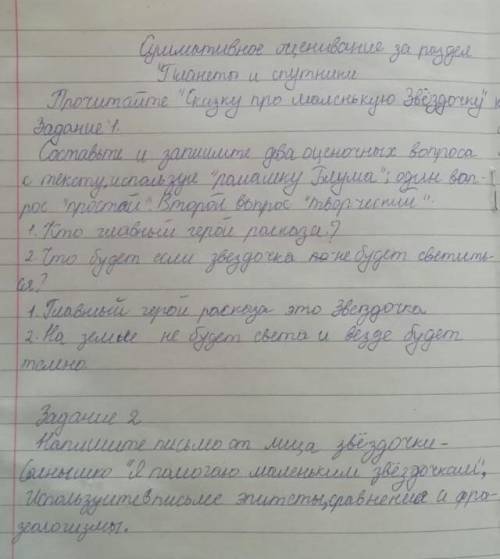 Суммативное оценивание за раздел
"Планеты и спутники
Прочитайте "Сказку про маленькую Звёздочку"
Задание 1.
Составьте и запишите два оценочных вопроса
к тексту, используя "ромашку Блума"; один воп-
рос "простой". Второй вопрос "творческий".
1. Кто главный герой расказа?
2. Что будет если звездочка не будет светить-
ся?
1. Главный герой расказа это Звездочка
2. На земле не будет света и везде будет
темно.
Задание 2
Напишите письмо от лица звёздочки-
Солнышко "Я помогаю маленьким звёздочкам",
Используйте в письме эпитеты, сравнение и фра-
зеологизмы.